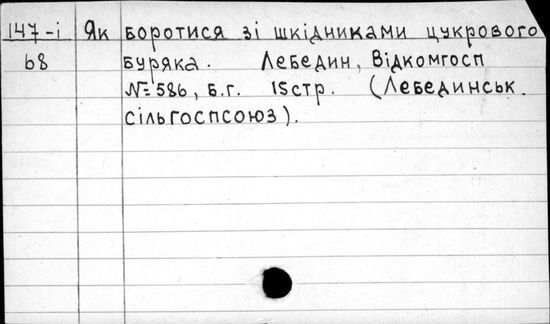 147-і Як боротися зі шкідниками цукрового
68 буряка. Лебедин, Відкомгосп
№586, б.г. 15стр. (Лебединськ.
сільгоспсоюз).